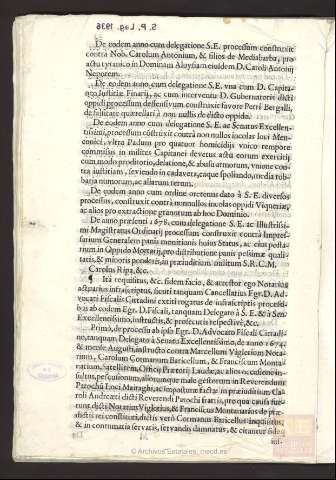 S.P. Leg. 1936
De eodem anno cum delegatione S.E. processum construxit
contra Nob. Carolum Antonium, & filios de Mediabarba, pro
actu tyranico in Dominam Aluysiam eiusdem D. Caroli Antonij
Nepotem.
De eodem anno cum delegatione S.E. vna cum D. Capita-
neo Iustitiæ Finarij, ac cum interventu D. Gubernatoris dicti
oppidi processum deffensivum construxit favore Petri Bergalli,
de falsitate querellati à non nullis de dicto oppido.
De eodem anno cum delegatione S.E. ac Senatus Excellen-
tissimi, processum cõstruxit contra non nullos incolas loci Men-
conici, vltra Padum pro quatuor homicidijs voico tempore
commissis in milites Capitanei devetus actu eorum exercitij
cum modo proditorio, delatione, & abusu armorum, vnione con-
tra iustitiam, seviendo in cadavera, eaque spoliando, media rob-
baria numorum, ac aliarum rerum.
De eodem anno cum ordine oretenus dato à S.E. diversos
processus, construxit contra nonnullos incolas oppidi Viqueriæ,
ac alios pro extractione granorum ab hoc Dominio.
De anno præsenti 1678. cum delegatione S.E. ac Illustrissi-
mi Magistratus Ordinarij processum construxit contra Impres-
sarium Generalem panis monitionis huius Status, ac eius postæ-
rium in Oppido Mortarij, pro distributione panis pessimæ quali-
tatis, & minoris ponderis, in præiudicium militum S.R.C.M.
Carolus Ripa, &c.
Ita requisitus, &c. fidem facio, & attestor ego Notarius
actuarius infrascriptus, sicuti tanquam Cancellarius Egr. D. Ad-
vocati Fiscalis Cittadini extiti rogatus de infrascriptis processi-
bus ab eodem Egr. D. Fiscali, tanquam Delegato à S.E. & à Sen-
Excellentissimo, instructis, & prosecutis respectivè, &c.
Primò, de processu ab ipso Egr. D. Advocato Fiscali Cittadi-
no, tanquam Delegato à Senatu Excellentissimo, de anno 1674.
& mense Augusti instructo contra Marcellum Viglesium Nota-
rium, Carolum Cormanum Baricellum, & Franciscum Monta-
narium, Satellitem, Officij Prætorij Laudæ, ac alios occasione in-
sultus, persecutionum, aliorumque malè gestorum in Reverendum
Parochũ Loci Mairaghi, ac imposturæ factæ in præiudicium Ca-
roli Andreæ dicti Reverendi Parochi fratris, pro qua causa fue-
runt dicti Notarius Viglesius, & Franciscus Montanarius de præ-
dictis rei constituti, dictus verò Cormanus Baricellus inquisitus,
& in contumatia servatis, servandis damnatus, & citantur fides
©Archivos Estatales, mecd.es